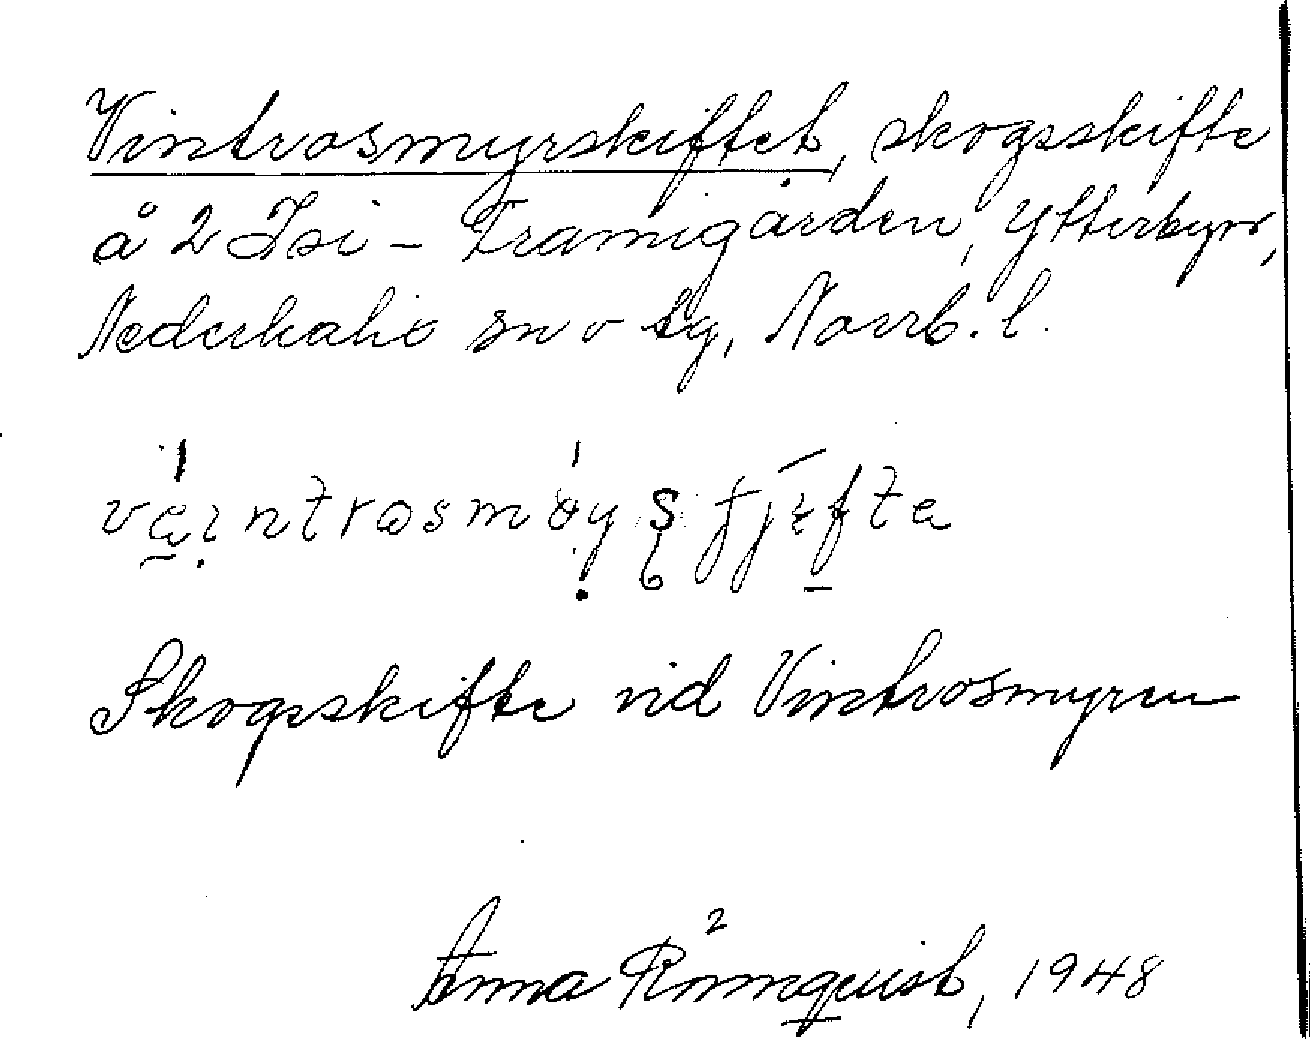 Vintrosmyrskiftet, skogsskifte
å 2 Isi - Framigården, Ytterbyn,
Nederkalix sn o tg, Norrb. l.
Skogsskifte vid Vintrosmyren
Anna Rönnquist, 1948